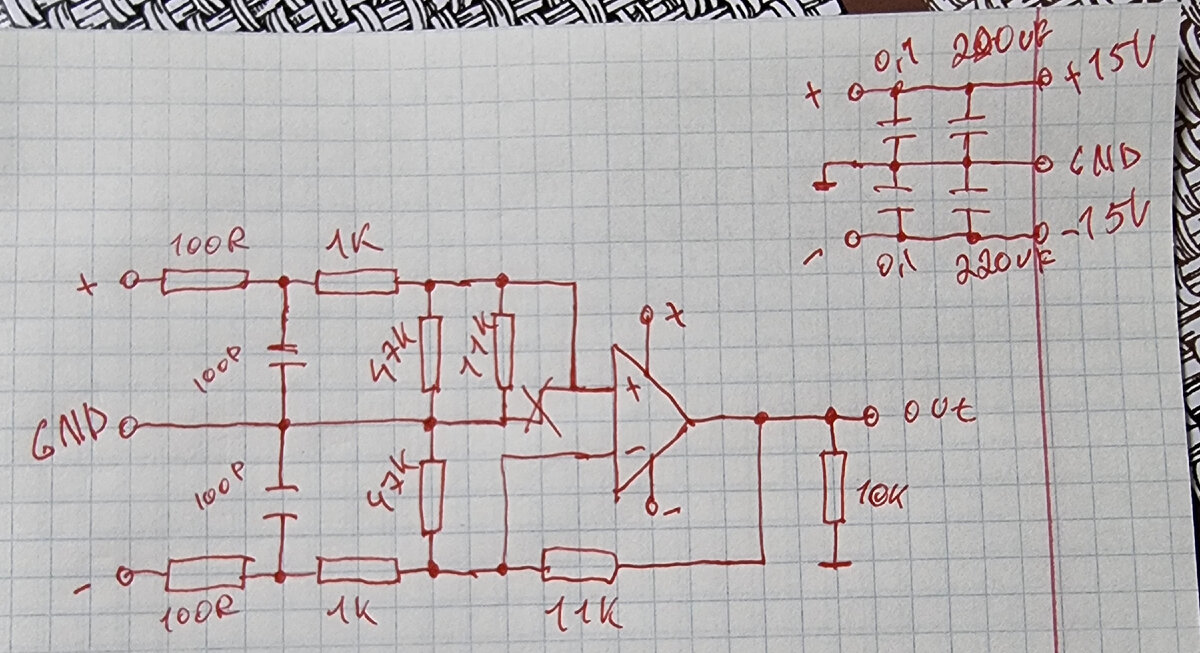 0,1 220uF
+ +15V
GND
- -15V
0,1 220uF
100R 1K
+ +
100P 47K 11K
+
GND out
-
100P 47K 10K
-
-
100R 1K 11K